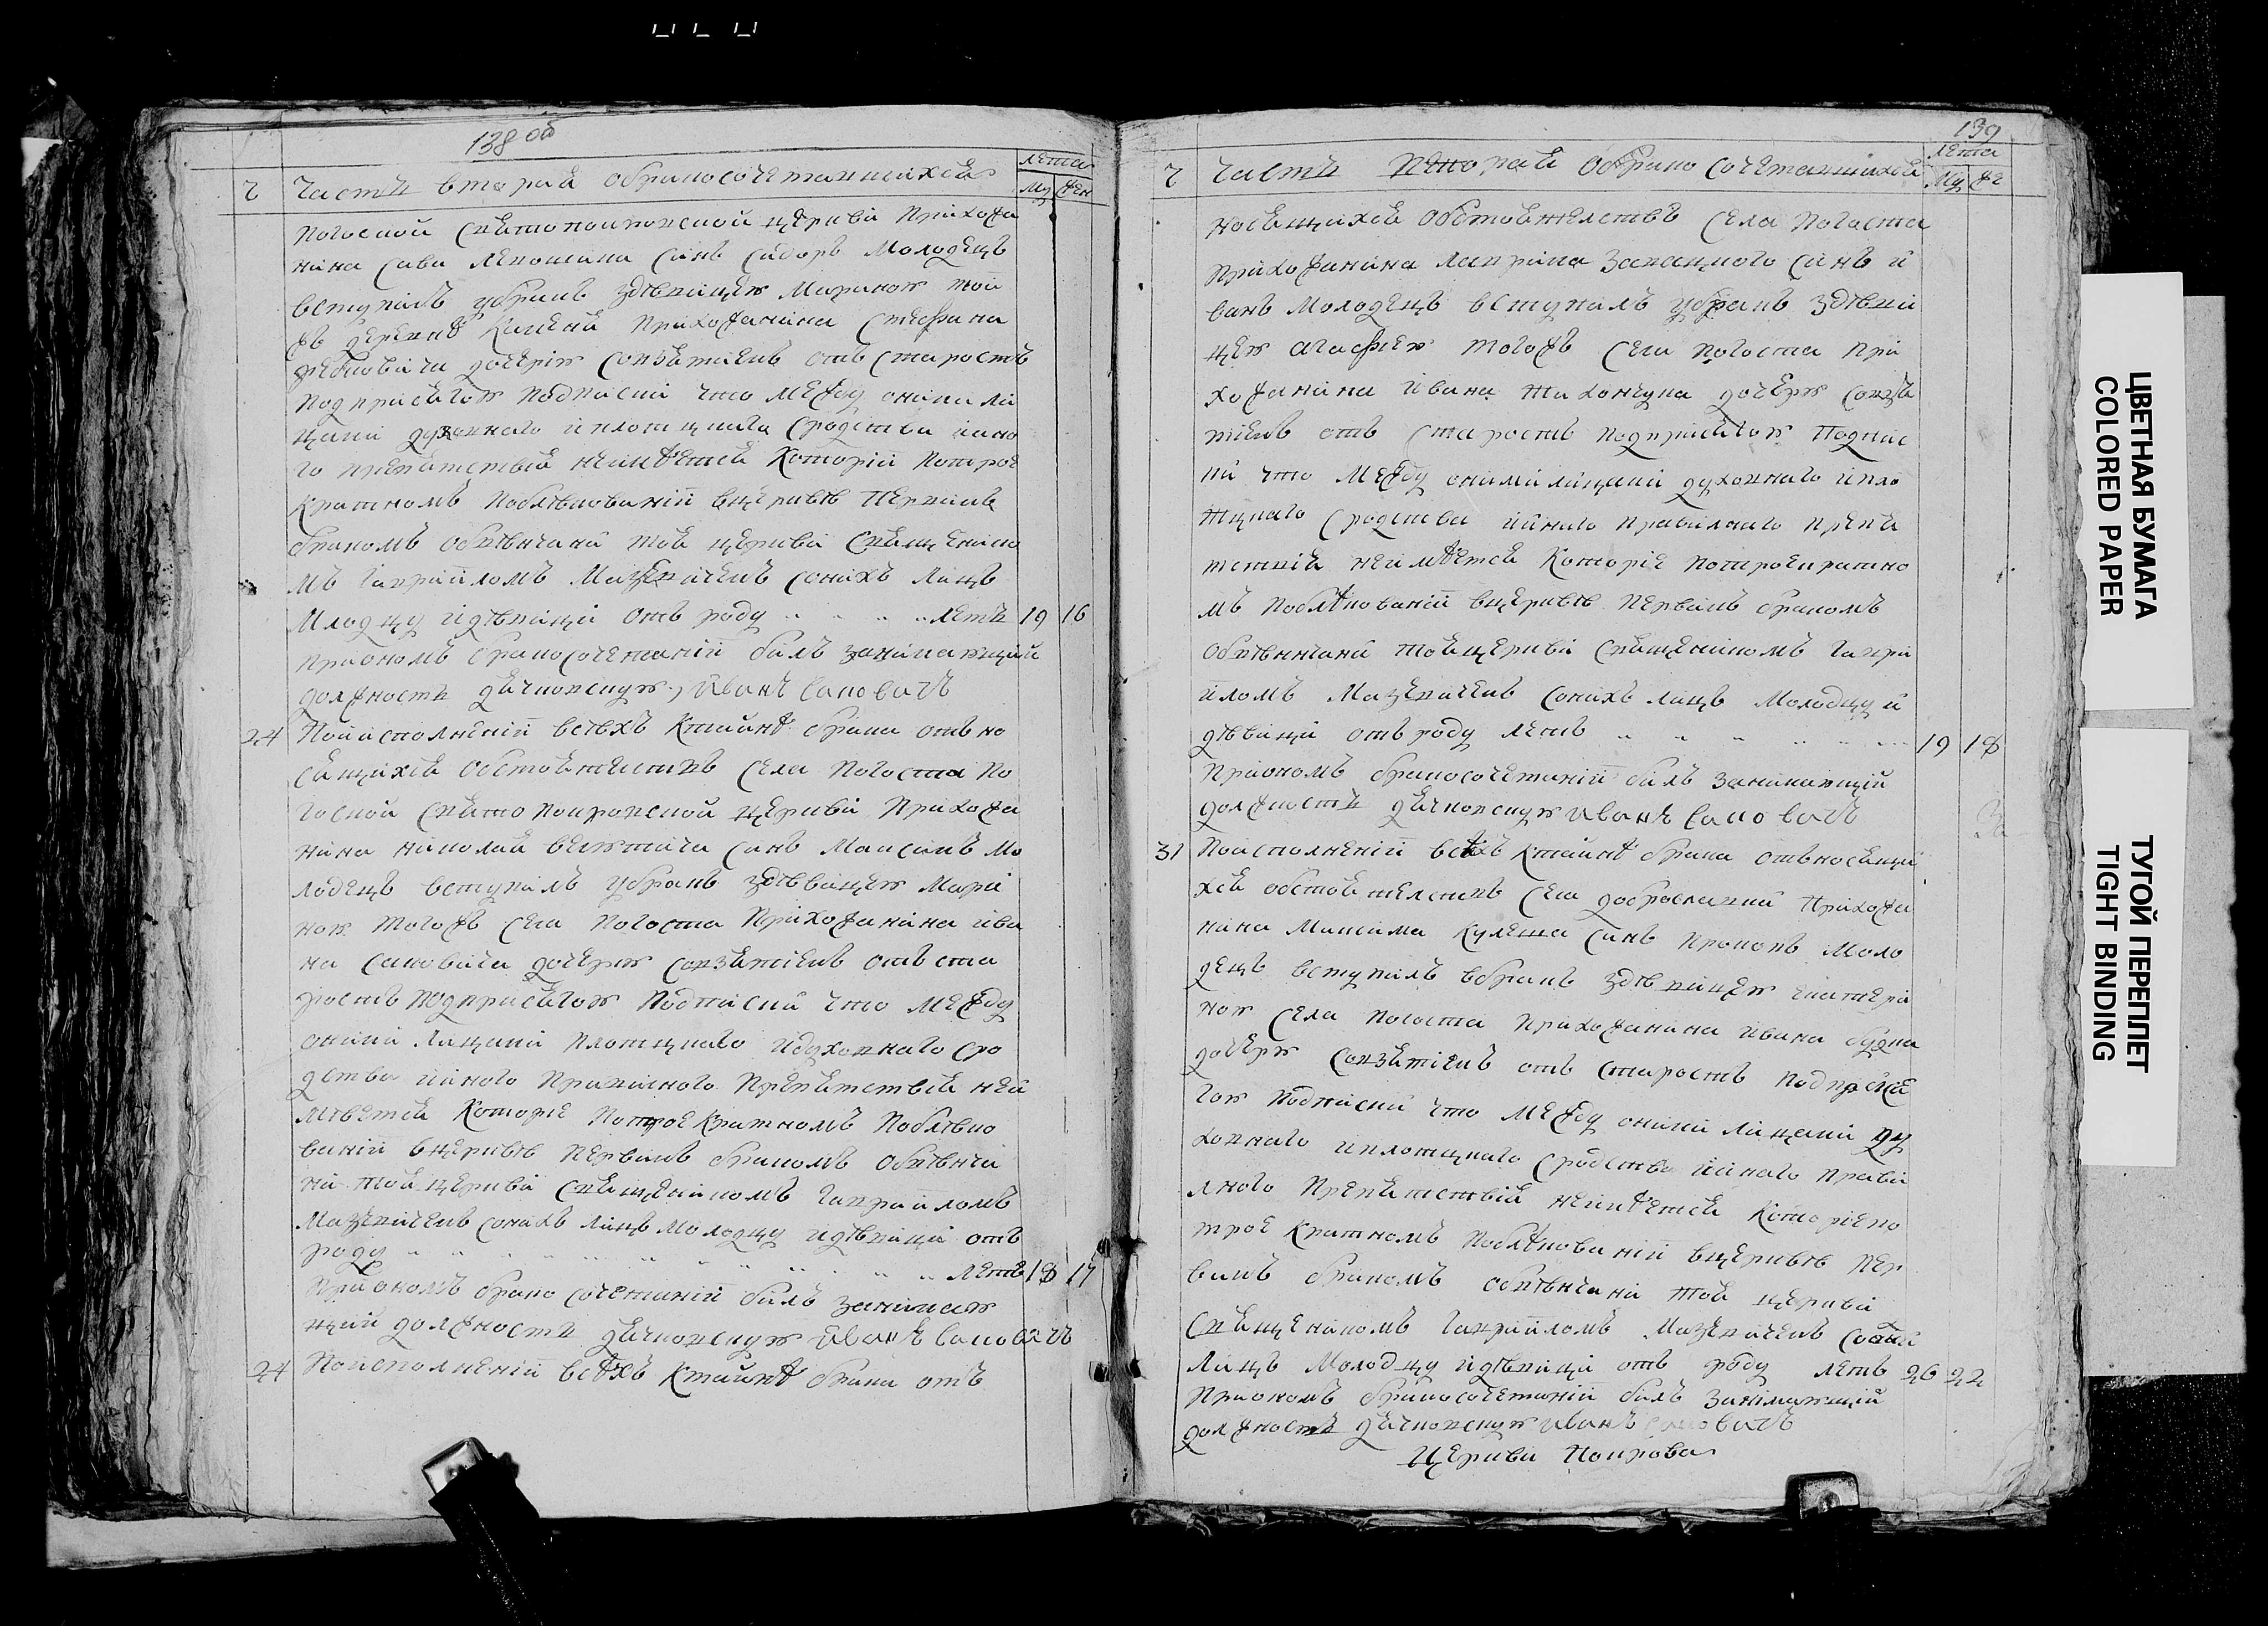 138 об
Ч Часть вторая обракосочетавшихся
лета
Му Жен
погоской святопокровской церкви прихожа
нина Сави Лепошина синъ Сидоръ молодецъ
вступилъ убракъ здѣвицею Мариною той
жъ деревнѣ приходанина Стефана
дочерію сопзятіемъ отъ старостъ
подприсягою подписки что между оними ли
цами духовнаго иплотцкаго сродства інно
го препятствия неимѣется которій потрое
кратномъ побліковании вцерквѣ первимъ
бракомъ обвѣнчани тоя церкви священико
мъ Гавріиломъ Мацкевичемъ сонихъ лицъ
молодцу идѣвици отъ роду летъ 19 16
приономъ бракосочетаніи билъ занімающій
должность дячковскую Иванъ Саковичъ
24 Поисполненіи всѣхъ ктайнѣ брака отъно
сящихся обстоятелствъ села погоста по
госкои святопокровской церкви прихожа
нина Николая синъ Максимъ мо
лодецъ вступилъ убракъ здѣвицею Марі
ною тогожъ села погоста прихожанина Ива
на Саковича дочерю созятіемъ отъ ста
ростъ подприсягою подписки что между
оними лицами плотцкаго идухов­наго сро
дства иіного правилного препятствія неи
мѣется которіе потроекратномъ поблѣко
ваніи вцерквѣ первимъ бракомъ обвѣнча
ни той церкви священикомъ Гавріиломъ
Мацкевичемъ сонихъ лицъ молодцу идѣвици отъ
роду летъ 18 17
приономъ бракосочетаніи билъ занімаю
щій должность дячковскую Иванъ Саковичъ
24 Поисполненіи всѣхъ ктайнѣ брака отъ
139
Ч Часть второй обрако сочетавшихся
лета
Му Же
носящихся обстоятелствъ села погоста
прихожанина Лавріна Западного синъ И
ванъ молодецъ вступилъ убракъ здѣви
цею Агафiею тогожъ села погоста при
хожанина Ивана Тихончука дочерю созя
тіемъ отъ старостъ подприсягою подпис
ки что между оними лицами духовнаго ипло
тцкаго сродства иіннаго правилнаго препя
тствія неимѣется которіе потроекратно
мъ поблѣкованіи вцерквѣ первимъ бракомъ
обвѣнчани тоя церкви священикомъ Гаврі
иломъ Мацкевичемъ сонихъ лицъ молодцу и
дѣвици отъ роду летъ 19 18
приономъ бракосочетаніи билъ занимающій
должность дячковскую Иванъ Саковичъ
31 Поисполненіи всѣхъ ктайнѣ брака отъносящи
хся обстоятелствъ села доброславки прихожа
нина Максима Кулеша синъ Прокопъ моло
децъ вступилъ вбракъ здѣвицею Екатері
ною села погоста прихожанина Ивана
дочерю созятіемъ отъ старостъ подприся
гою подписки что между оними лицами ду
ховнаго иплотцкаго сродства иіннаго прави
лного препятствія неимѣется которіе по
троекратномъ поблѣкованіи вцерквѣ пер
вимъ бракомъ обвѣнчани тоя церкви
священикомъ Гавріиломъ Мацкевичемъ
лицъ молодцу идѣвици отъ роду летъ 26 22
приономъ бракосочетаніи билъ занімающій
должность дячковскую Иванъ Саковичъ
Церкви Покрова
ЦВЕТНАЯ БУМАГА
COLORED PAPER
ТУГОЙ ПЕРЕПЛЕТ
TIGHT BINDING